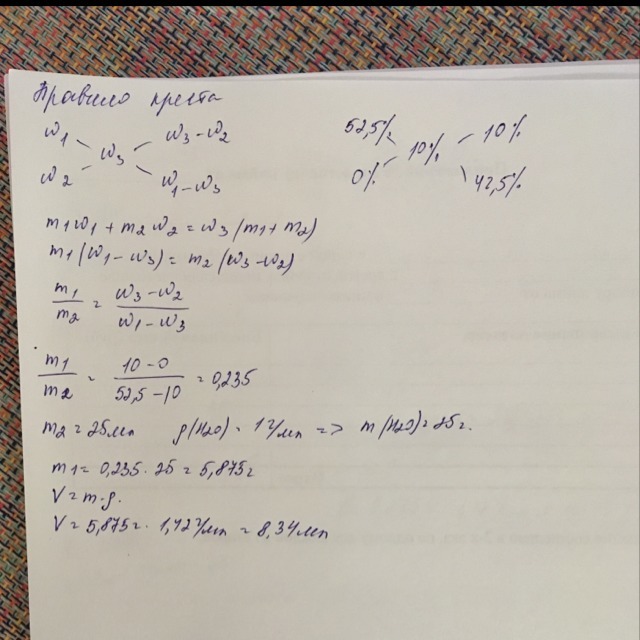 Правило креста
ω1 ω3-ω2
ω3
ω2 ω1-ω3
52,5% 10%
10%
0% 42,5%
m1ω1 + m2ω2 = ω3(m1+m2)
m1(ω1-ω3) = m2(ω3-ω2)
m1/m2 = ω3-ω2/ω1-ω3
m1/m2 = 10-0/52,5-10 = 0,235
m2 = 25мл ρ(H2O) = 1г/мл => m(H2O) = 25г.
m1 = 0,235·25 = 5,875г
V = m·ρ.
V = 5,875г·1,42г/мл = 8,34мл